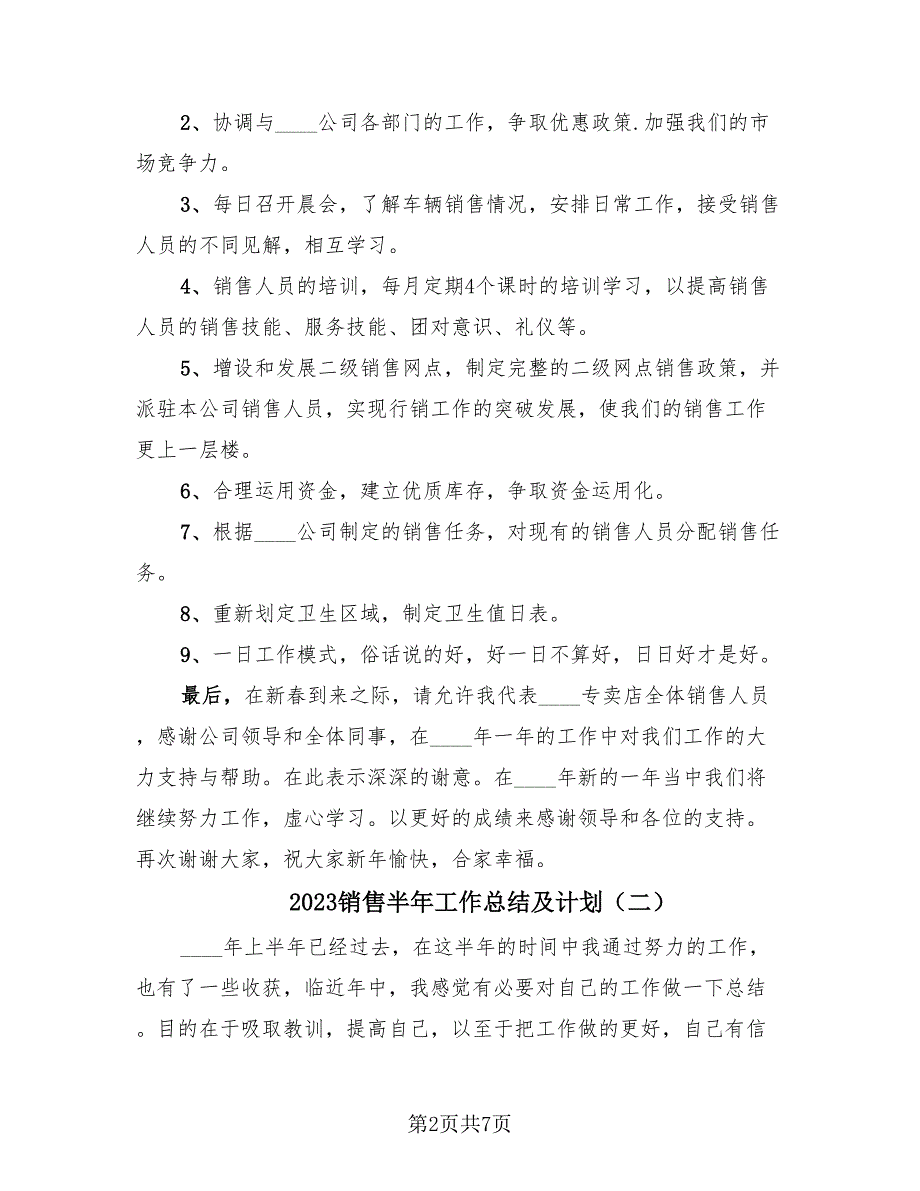 2、协调与____公司各部门的工作，争取优惠政策.加强我们的市
场竞争力。
3、每日召开晨会，了解车辆销售情况，安排日常工作，接受销售
人员的不同见解，相互学习。
4、销售人员的培训，每月定期4个课时的培训学习，以提高销售
人员的销售技能、服务技能、团对意识、礼仪等。
5、增设和发展二级销售网点，制定完整的二级网点销售政策，并
派驻本公司销售人员，实现行销工作的突破发展，使我们的销售工作
更上一层楼。
6、合理运用资金，建立优质库存，争取资金运用化。
7、根据____公司制定的销售任务，对现有的销售人员分配销售任
务。
8、重新划定卫生区域，制定卫生值日表。
9、一日工作模式，俗话说的好，好一日不算好，日日好才是好。
最后，在新春到来之际，请允许我代表____专卖店全体销售人员
，感谢公司领导和全体同事，在____年一年的工作中对我们工作的大
力支持与帮助。在此表示深深的谢意。在____年新的一年当中我们将
继续努力工作，虚心学习。以更好的成绩来感谢领导和各位的支持。
再次谢谢大家，祝大家新年愉快，合家幸福。
2023销售半年工作总结及计划（二）
____年上半年已经过去，在这半年的时间中我通过努力的工作，
也有了一些收获，临近年中，我感觉有必要对自己的工作做一下总结
。目的在于吸取教训，提高自己，以至于把工作做的更好，自己有信
第2页共7页